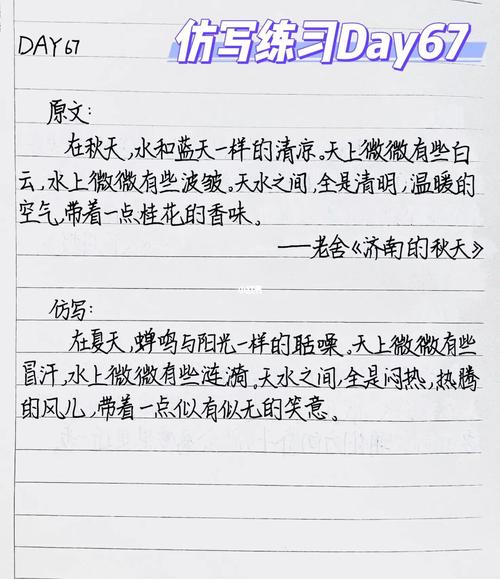 仿写练习Day67
DAY 67
原文:
在秋天,水和蓝天一样的清凉。天上微微有些白
云,水上微微有些波皱。天水之间,全是清明,温暖的
空气,带着一点桂花的香味。
——老舍《济南的秋天》
仿写:
在夏天,蝉鸣与阳光一样的聒噪。天上微微有些
冒汗,水上微微有些涟漪。天水之间,全是闷热,热腾
的风儿,带着一点似有似无的笑意。